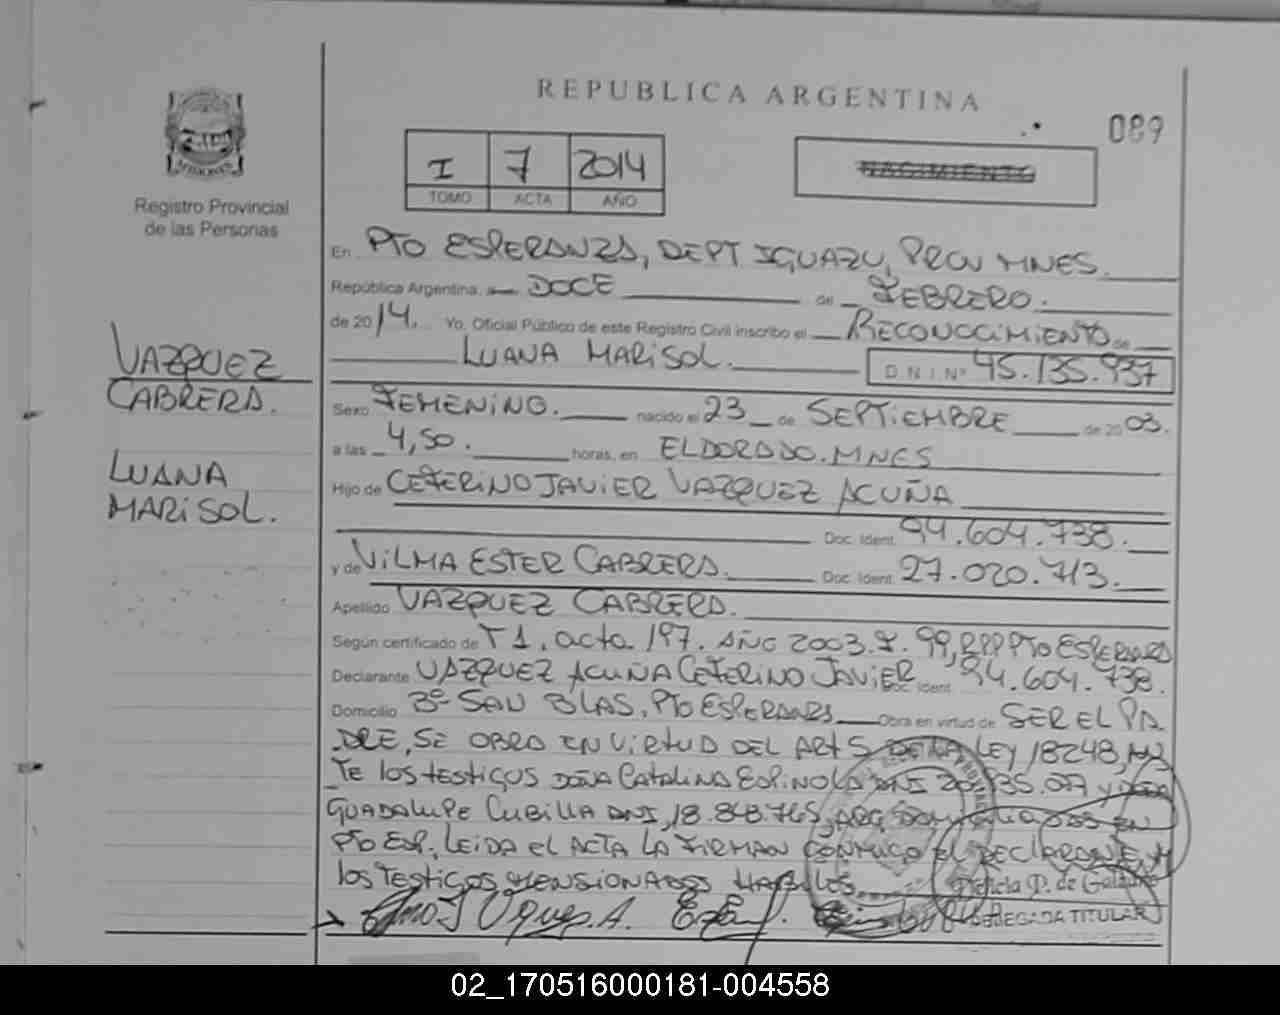 REPUBLICA ARGENTINA
089
I 7 2014
TOMO ACTA AÑO
NACIMIENTO
Registro Provincial
de las Personas
En PTO ESPERANZA, DEPT IGUAZU, PROV MNES.
República Argentina, a DOCE de FEBRERO.
de 2014. Yo, Oficial Público de este Registro Civil inscribo el RECONOCIMIENTO de
LUANA MARISOL. D.N.I.Nº 45.135.937
VAZQUEZ
CABRERA.
LUANA
MARISOL.
Sexo FEMENINO. nacido el 23 de SEPTIEMBRE de 2003.
a las 4,50. horas, en ELDORADO. MNES
Hijo de CEFERINO JAVIER VAZQUEZ ACUÑA
Doc. Ident. 94.604.738.
y de VILMA ESTER CABRERA. Doc. Ident. 27.020.713.
Apellido VAZQUEZ CABRERA.
Según certificado de T 1. acta 197. AÑO 2003. F. 99, RPP PTO ESPERANZA
Declarante VAZQUEZ ACUÑA CEFERINO JAVIER Doc. Ident. 94.604.738.
Domicilio Bº SAN BLAS. PTO ESPERANZA Obra en virtud de SER EL PA
DRE, SE OBRA EN VIRTUD DEL ART 5 DE LA LEY 18248, AN
TE los testigos DOÑA Catalina ESPINOLA DNI
GUADALUPE CUBILLA DNI, 18.848.765, ARG. EN
PTO ESP. LEIDA el ACTA LA FIRMAN CONMIGO EL DECLARANTE, Y
los Testigos MENSIONADOS HABILES.
DELEGADA TITULAR
02_170516000181-004558